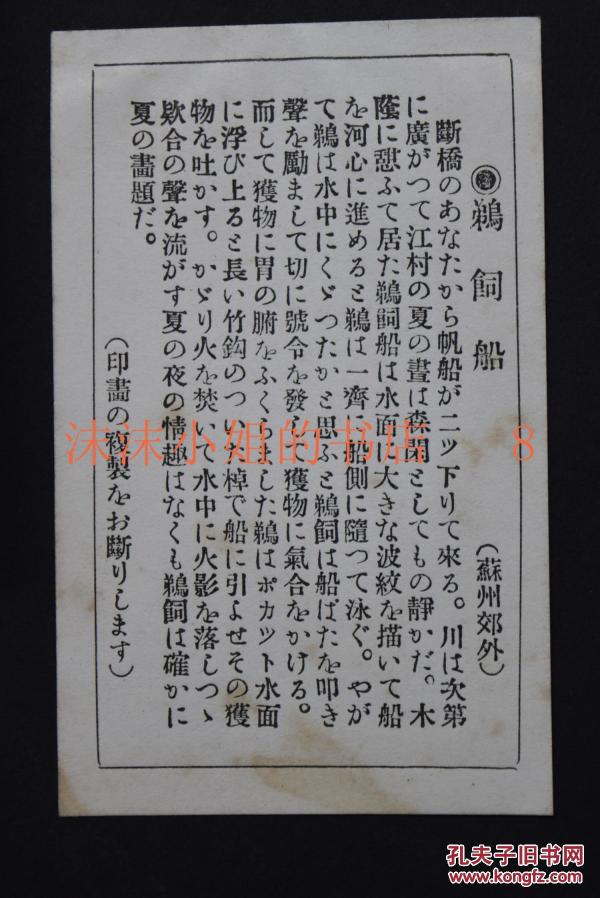 ◉鵜飼船
(蘇州郊外)
斷橋のあなたから帆船が二ツ下りて來る。川は次第
に廣がつて江村の夏の晝は森閑としてもの靜かだ。木
蔭に憩ふて居た鵜飼船は水面に大きな波紋を描いて船
を河心に進めると鵜は一齊に船側に隨つて泳ぐ。やが
て鵜は水中にくゞつたかと思ふと鵜飼は船ばたを叩き
聲を勵まして切に號令を發して獲物に氣合をかける。
而して獲物に胃の腑をふくらました鵜はポカツト水面
に浮び上ると長い竹鈎のついた棹で船に引よせその獲
物を吐かす。かゞり火を焚いて水中に火影を落しつゝ
欸合の聲を流がす夏の夜の情趣はなくも鵜飼は確かに
夏の畵題だ。
(印畵の複製をお斷りします)
沫沫小姐的书店 8
孔夫子旧书网
www.kongfz.com